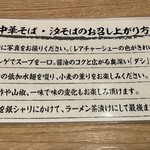 中華そば・汐そばのお召し上がり方
に写真をお撮りください。(レアチャーシューの色がきれい
ンゲでスープを一口。醤油のコクと広がる魚深い「ダシ」
の低加水麺を啜り、小麦の薫りをお楽しみください。
竹や山椒、一味で味の変化もお楽しみください。
を銀シャリにかけて、ラーメン茶漬けにして最後ま